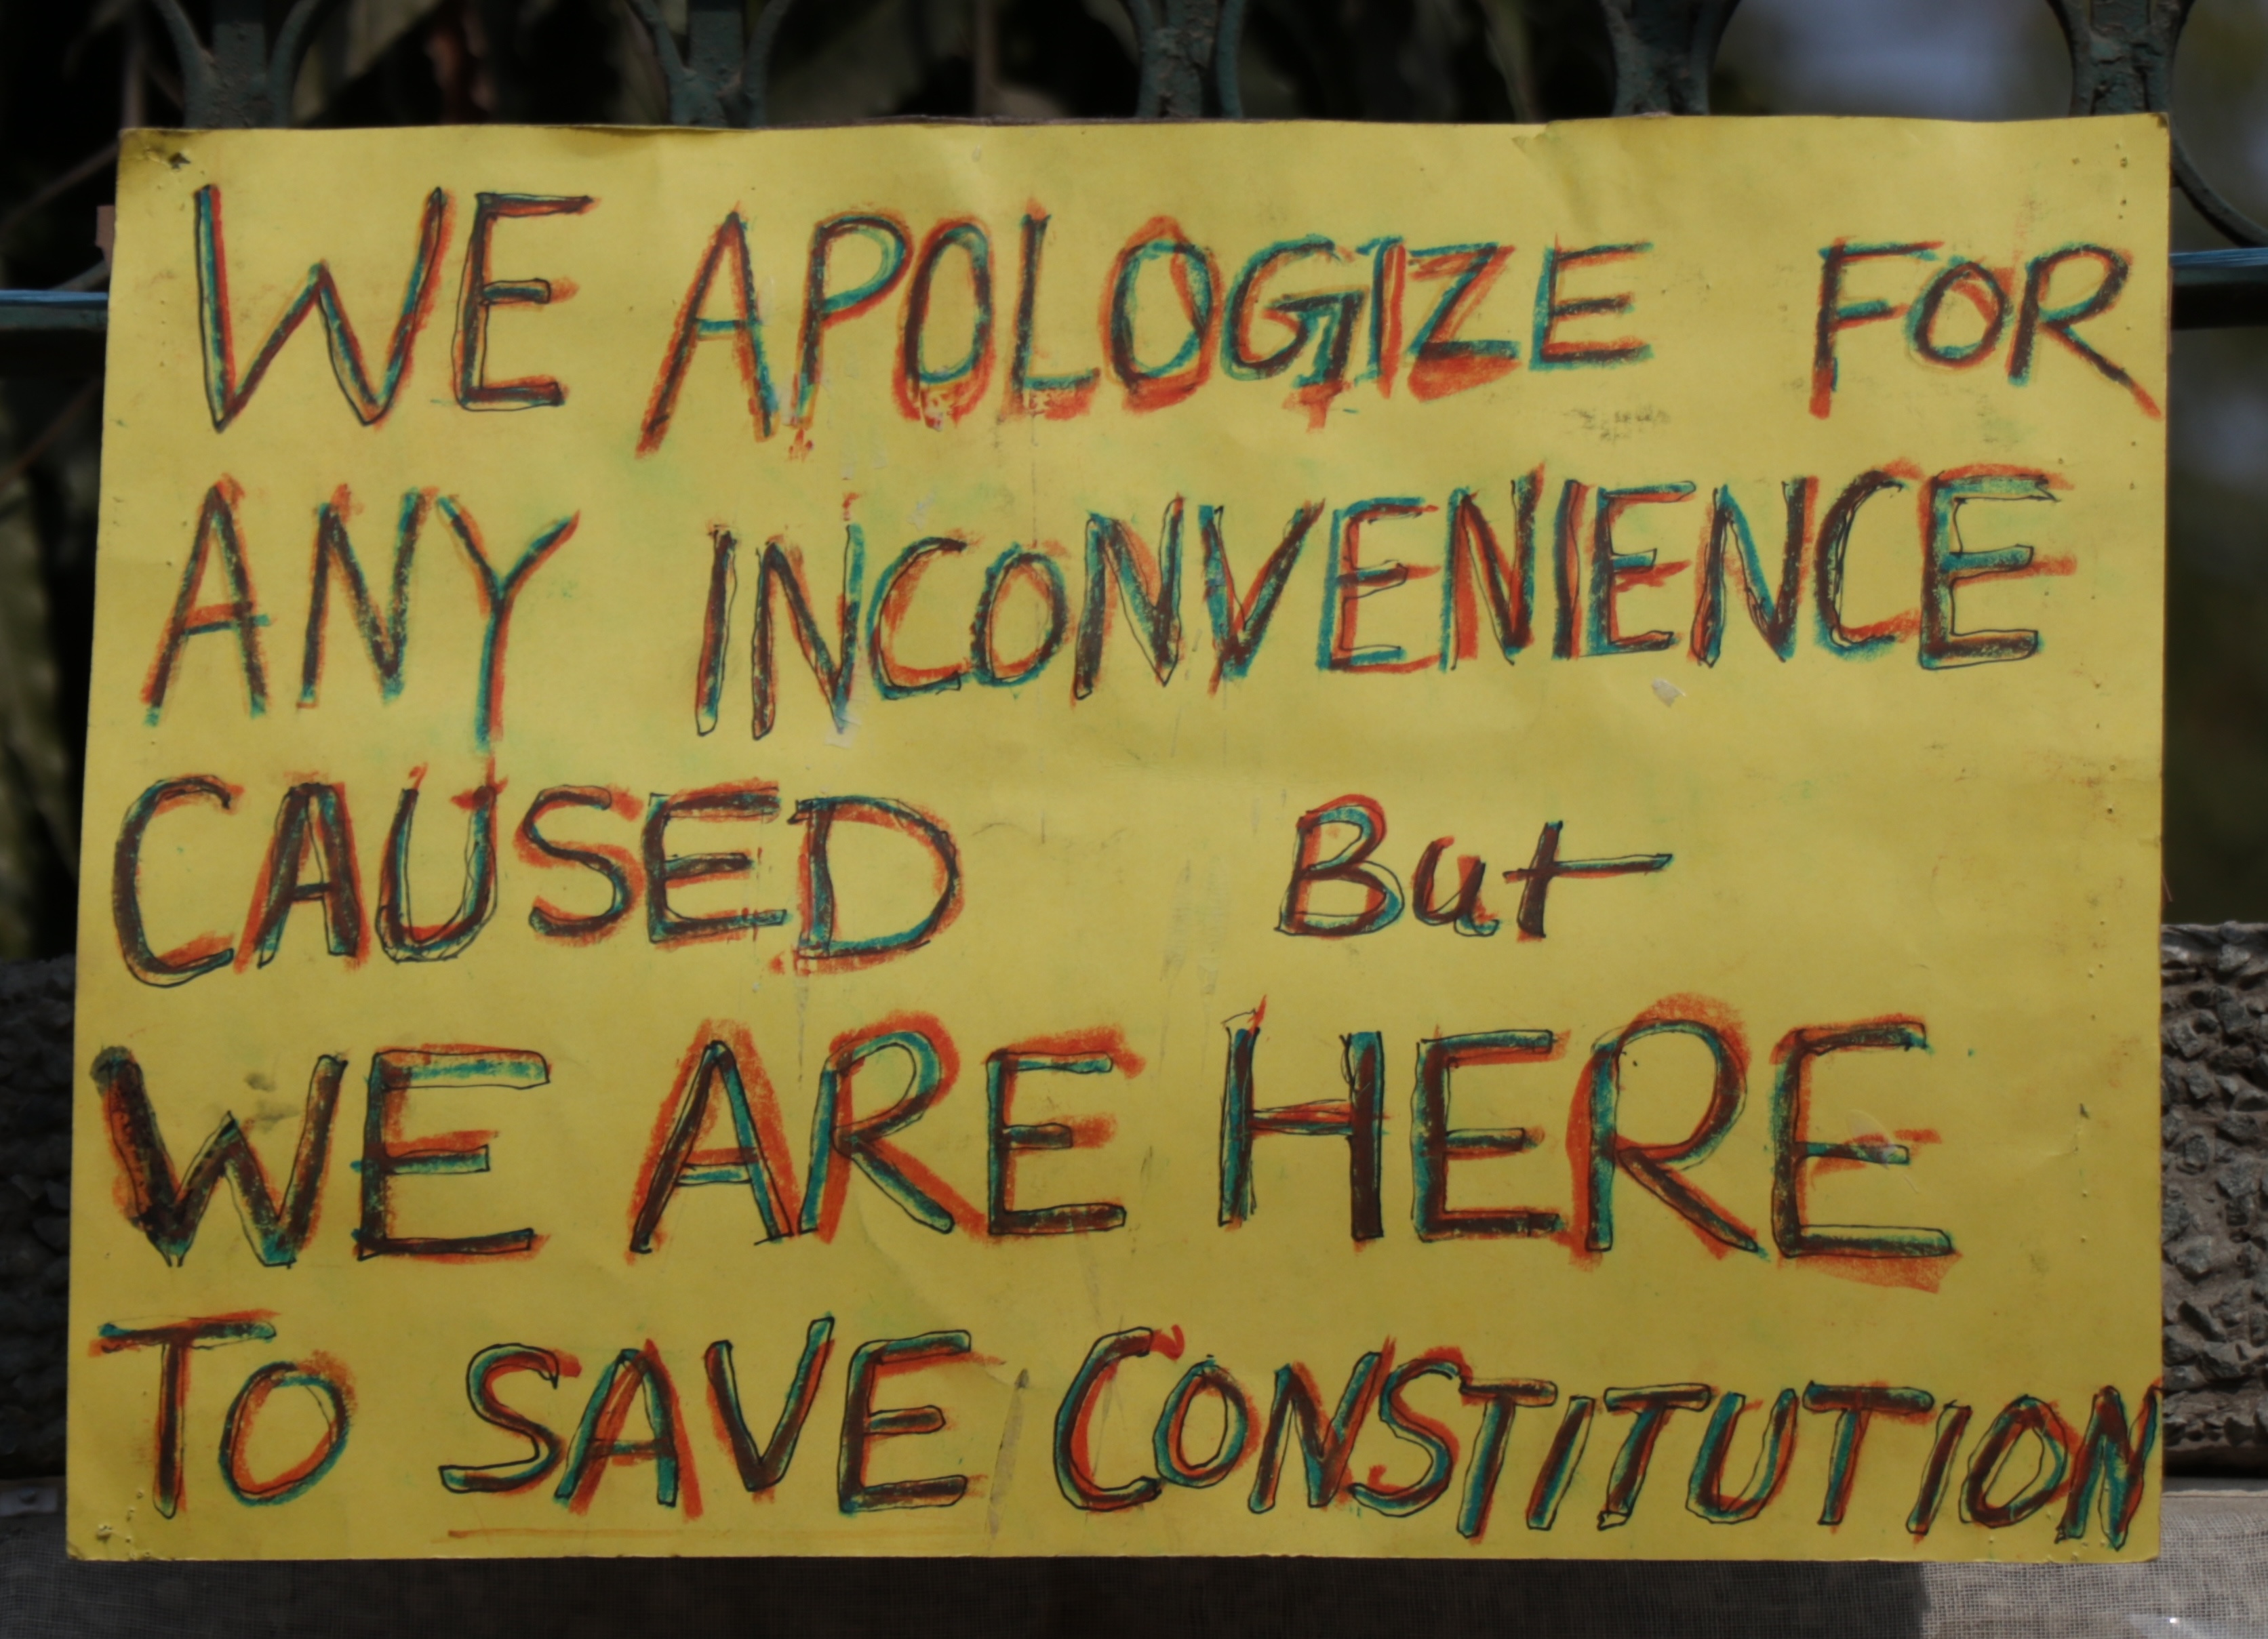 WE APOLOGIZE FOR
ANY INCONVENIENCE
CAUSED But
WE ARE HERE
TO SAVE CONSTITUTION